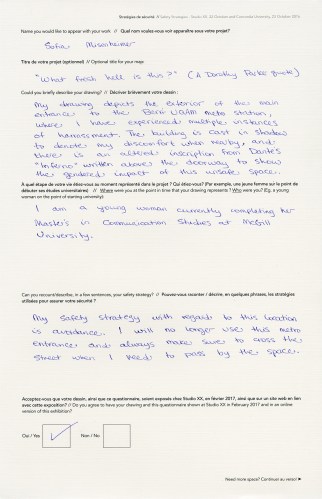 Stratégies de sécurité // Safety Strategies - Studio XX, St. Christien and Concordia University, 22 October 2016
Name you would like to appear with your work // Quel nom voulez-vous voir apparaître sous votre projet?
Sofia Misenheimer
Titre de votre projet (optionnel) // Optional title for your map
"What fresh hell is this?" (A Dorothy Parker quote)
Could you briefly describe your drawing? // Décrivez brièvement votre dessin :
My drawing depicts the exterior of the main
entrance to the Berri UQAM metro station,
where I have experienced multiple instances
of harassment. The building is cast in shadow
to denote my discomfort when nearby, and
there is an altered inscription from Dante's
"Inferno" written above the doorway to show
the gendered impact of this unsafe space.
À quel étape de votre vie étiez-vous au moment représenté dans le projet ? Qui étiez-vous? (Par exemple, une jeune femme sur le point de
débuter ses études universitaires) // Where were you at the point in time that your drawing represents? Who were you? (Eg. a young
woman on the point of starting university)
I am a young woman currently completing her
Master's in Communication Studies at McGill
University.
Can you recount/describe, in a few sentences, your safety strategy? // Pouvez-vous raconter / décrire, en quelques phrases, les stratégies
utilisées pour assurer votre sécurité ?
My safety strategy with regard to this location
is avoidance. I will no longer use this metro
entrance and always make sure to cross the
street when I need to pass by the space.
Acceptez-vous que votre dessin, ainsi que ce questionnaire, soient exposés chez Studio XX, en février 2017, ainsi que sur un site web en lien
avec cette exposition? // Do you agree to have your drawing and this questionnaire shown at Studio XX in February 2017 and in an online
version of this exhibition?
Oui / Yes Non / No
Need more space? Continuez au verso! ►